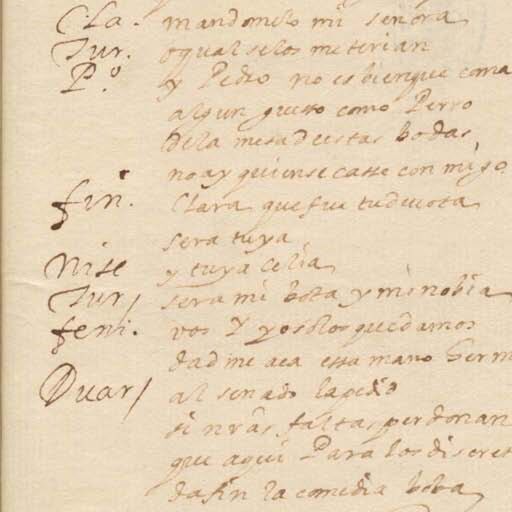 Cla. mandomelo mi señora
Tur. o qual selos meterian
P.º y Pedro no es bien que coma
algun guesto como Perro
dela mesa de estas bodas
no ay quien se casse con migo
fin. Clara que fue tu devota
sera tuya
Nise y tuya Celia
Tur/ sera mi bota y mi nobia
feni. vos y yo solos quedamos
dadme aca essa mano
Duar/ al senado la pido
si nrãs faltas perdonan
que aqui Para los discret
da fin la comedia boba